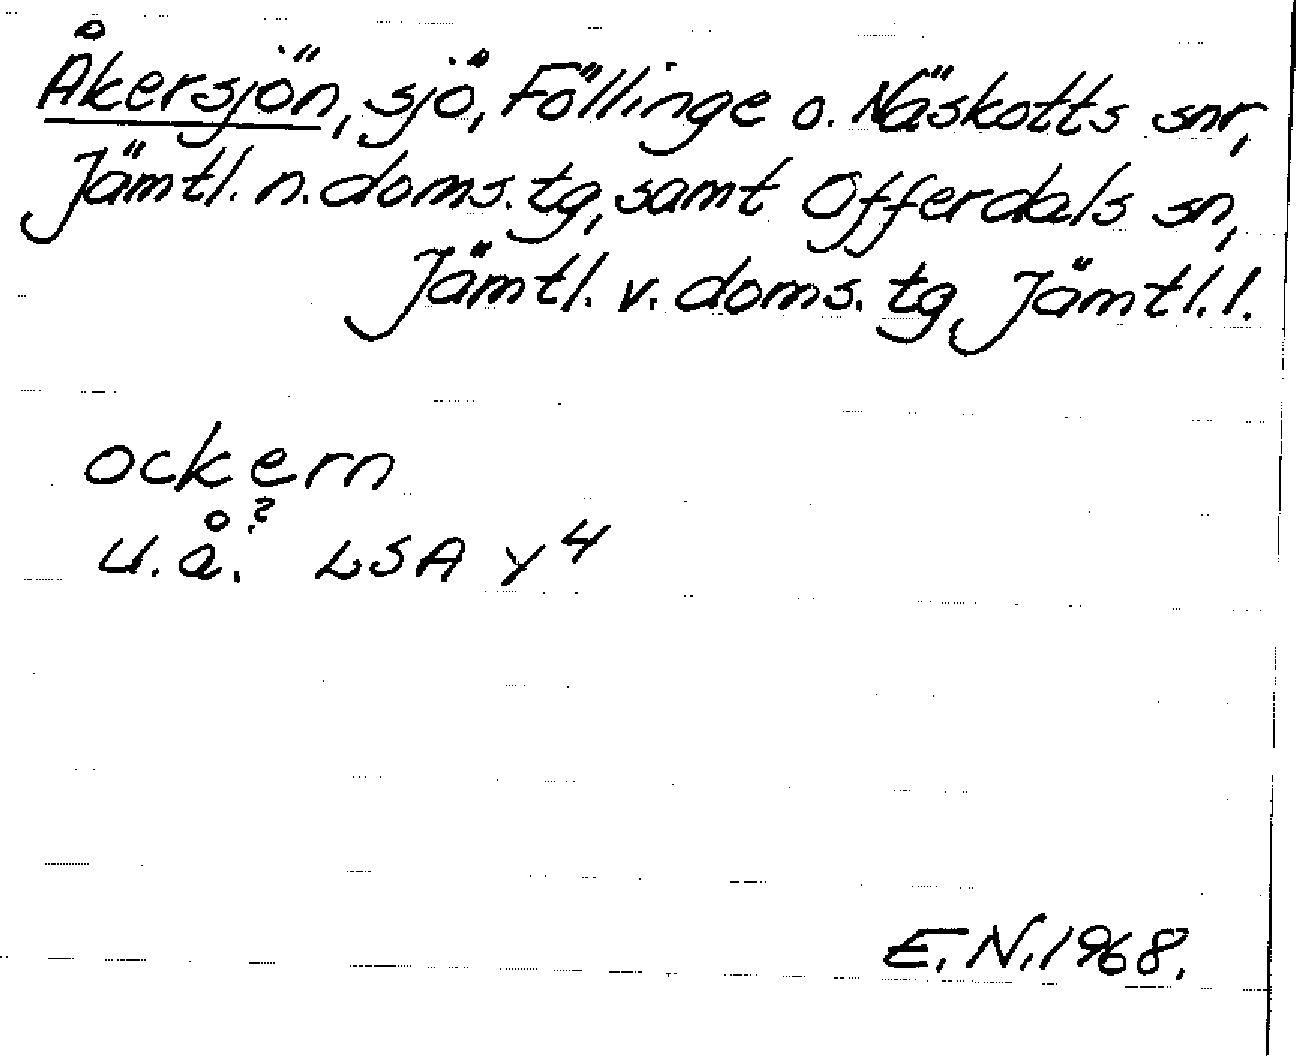 Åkersjön, sjö, Föllinge o. Näskotts snr,
Jämtl. n. doms. tg, samt Offerdals sn,
Jämtl. v. doms. tg, Jämtl. l.
ockern
u. å.? LSA Y 4
E. N. 1968.